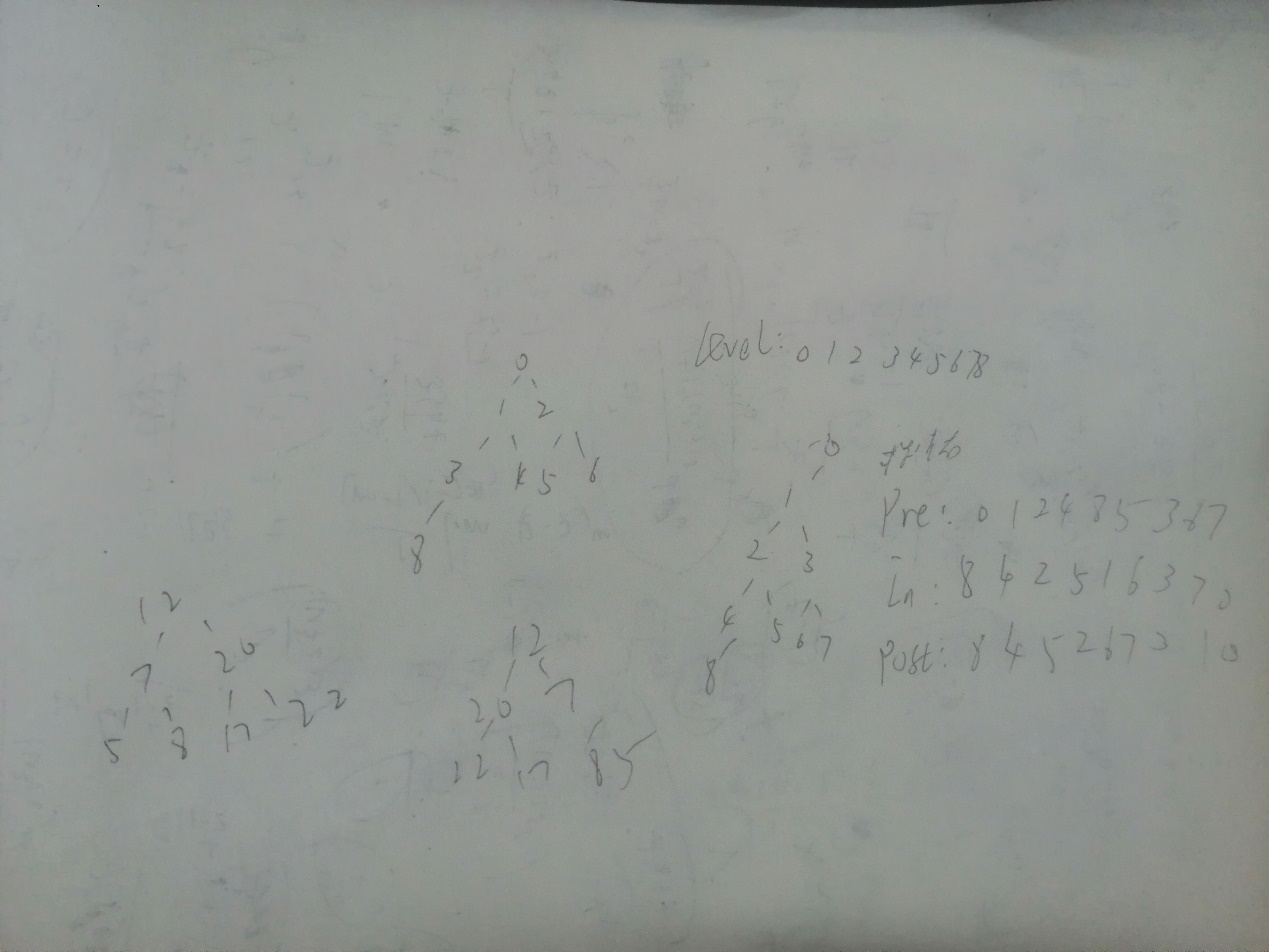 Level: 0 1 2 3 4 5 6 7 8
0
1 2
3 4 5 6
8
0
1
2 3
4 5 6 7
8
Pre: 0 1 2 4 8 5 3 6 7
In: 8 4 2 5 1 6 3 7 0
Post: 8 4 5 2 6 7 3 1 0
12
7 20
5 8 17 22
12
20 7
22 17 8 5